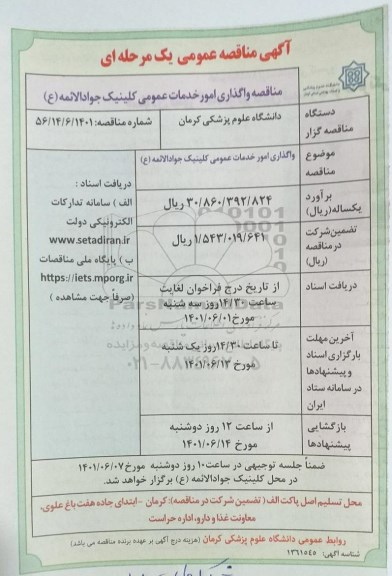 آگهی مناقصه عمومی یک مرحله ای
مناقصه واگذاری امور خدمات عمومی کلینیک جوادالائمه (ع)
دستگاه
مناقصه گزار
دانشگاه علوم پزشکی کرمان
شماره مناقصه: ۵۶/۱۴/۶/۱۴۰۱
موضوع
مناقصه
واگذاری امور خدمات عمومی کلینیک جوادالائمه (ع)
برآورد
یکساله (ریال)
۳۰/۸۶۰/۳۹۲/۸۲۴ ریال
تضمین شرکت
در مناقصه
(ریال)
۱/۵۴۳/۰۱۹/۶۴۱ ریال
دریافت اسناد :
الف ) سامانه تدارکات
الکترونیکی دولت
www.setadiran.ir
ب ) پایگاه ملی مناقصات
https://iets.mporg.ir
(صرفاً جهت مشاهده )
دریافت اسناد
از تاریخ درج فراخوان لغایت
ساعت ۱۴/۳۰ روز سه شنبه
مورخ ۱۴۰۱/۰۶/۰۱
آخرین مهلت
بارگزاری اسناد
و پیشنهادها
در سامانه ستاد
ایران
تا ساعت ۱۴/۳۰ روز یک شنبه
مورخ ۱۴۰۱/۰۶/۱۳
بازگشایی
پیشنهادها
از ساعت ۱۲ روز دوشنبه
مورخ ۱۴۰۱/۰۶/۱۴
ضمناً جلسه توجیهی در ساعت ۱۰ روز دوشنبه مورخ ۱۴۰۱/۰۶/۰۷
در محل کلینیک جوادالائمه (ع) برگزار خواهد شد.
محل تسلیم اصل پاکت الف ( تضمین شرکت در مناقصه): کرمان - ابتدای جاده هفت باغ علوی،
معاونت غذا و دارو، اداره حراست
روابط عمومی دانشگاه علوم پزشکی کرمان (هزینه درج آگهی بر عهده برنده مناقصه می باشد)
شناسه آگهی: ۱۳۶۱۵۴۵